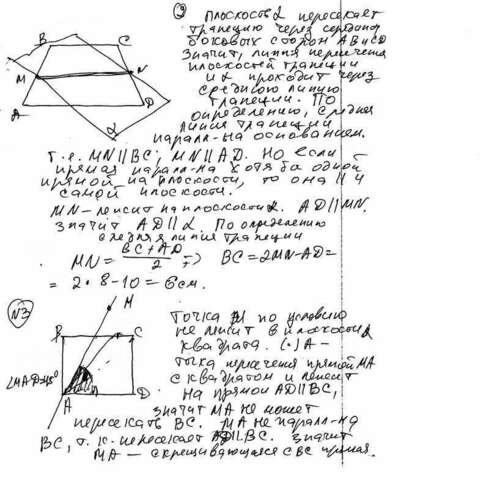 плоскость α пересекает
трапецию через середины
боковых сторон AB и CD
значит, линия пересечения
плоскостей трапеции
и α проходит через
среднюю линию
трапеции. По
определению, средняя
линия трапеции
паралл-на основаниям.
т.е. MN||BC, MN||AD. Но если
прямая паралл-на хотя бы одной
прямой на плоскости, то она || и
самой плоскости.
MN – лежит на плоскости α. AD||MN.
значит AD||α По определению
средняя линия трапеции
MN = BC+AD / 2 => BC = 2MN-AD=
= 2·8-10=6см.
B C
M N
A D
α
N3
M
B C
∠MAD=45°
A D
Точка M по условию
не лежит в плоскости
квадрата. (·)A –
точка пересечения прямой MA
с квадратом и лежит
на прямой AD||BC,
значит MA не может
пересекать BC. MA не паралл-на
BC, т.к. пересекает AD||BC. значит
MA – скрещивающаяся с BC прямая.